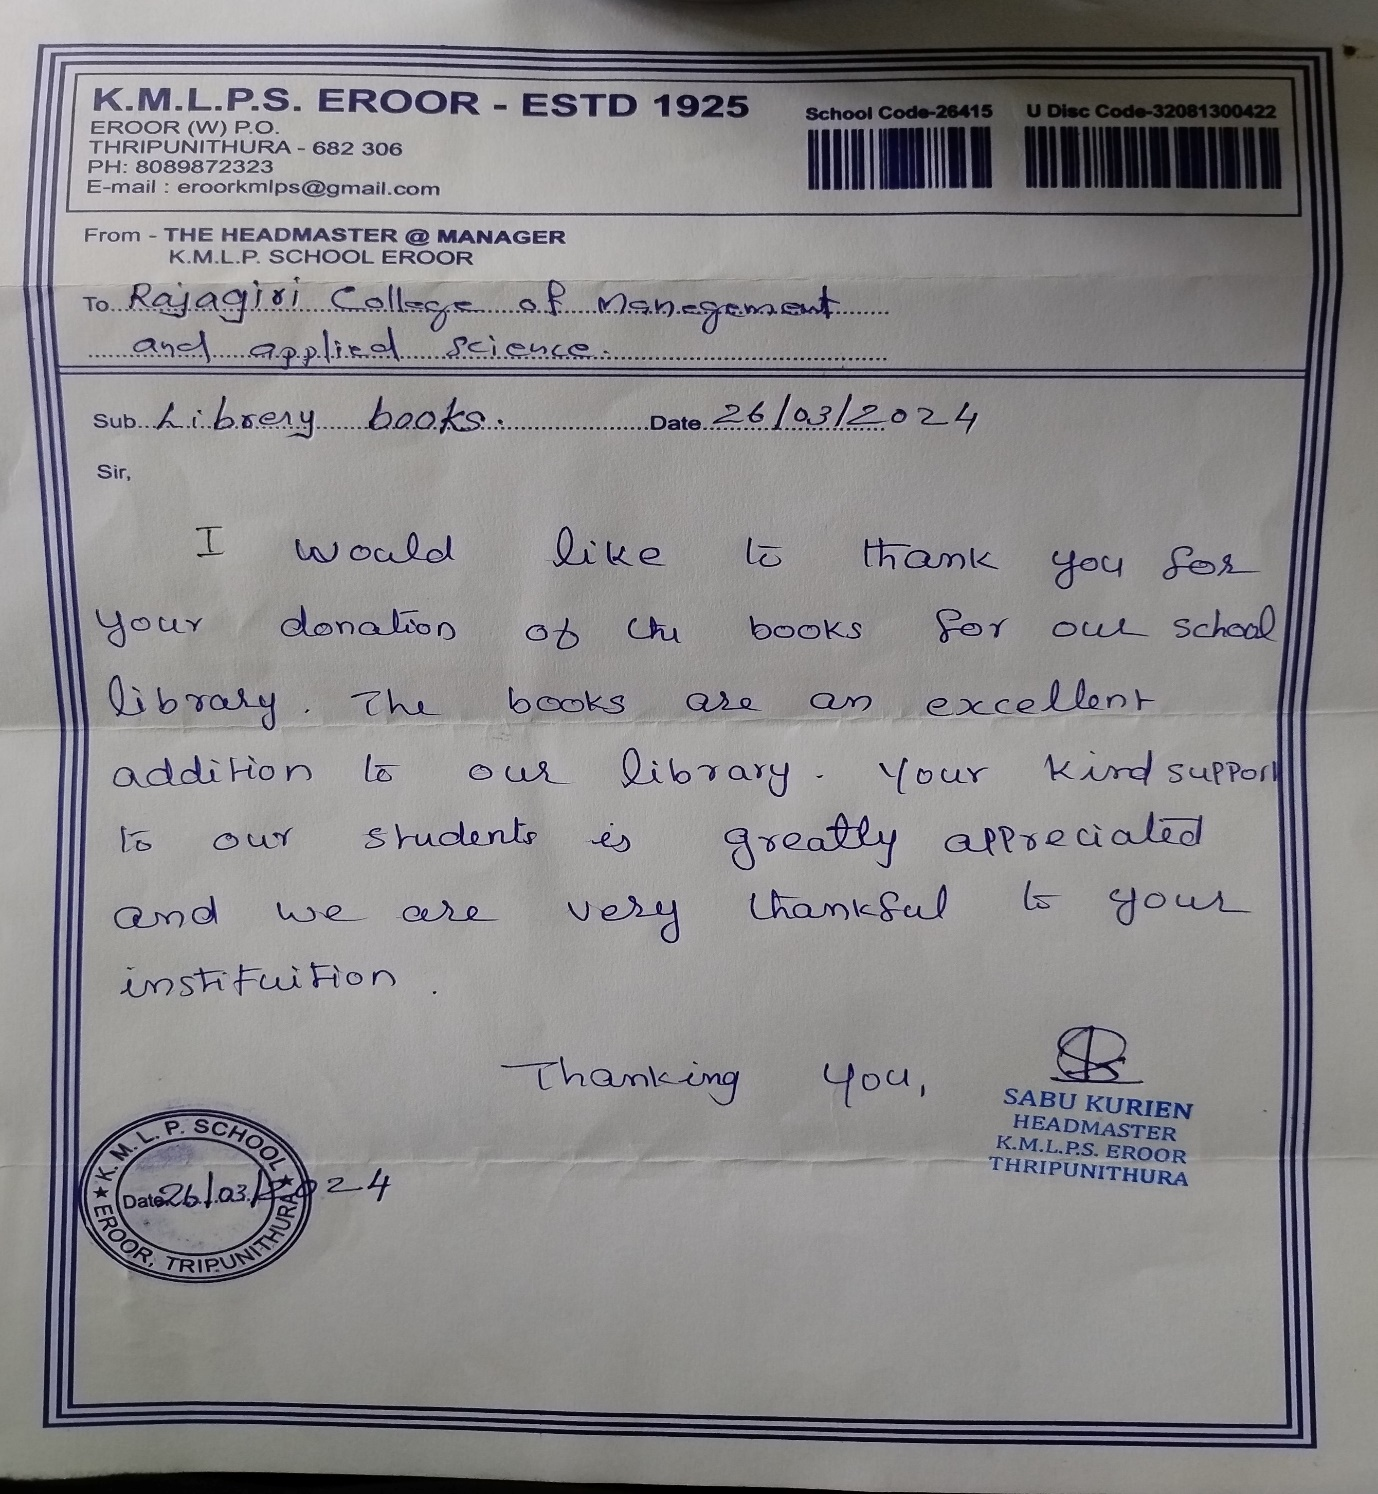 K.M.L.P.S. EROOR - ESTD 1925
EROOR (W) P.O.
THRIPUNITHURA - 682 306
PH: 8089872323
E-mail : eroorkmlps@gmail.com
School Code-26415
U Disc Code-32081300422
From - THE HEADMASTER @ MANAGER
K.M.L.P. SCHOOL EROOR
To Rajagiri College of Management
and applied science.
Sub Librery books. Date 26/03/2024
Sir,
I would like to thank you for
your donation of the books for our school
library. The books are an excellent
addition to our library. Your kind support
to our students is greatly appreciated
and we are very thankful to your
instituition.
Thanking you,
SABU KURIEN
HEADMASTER
K.M.L.P.S. EROOR
THRIPUNITHURA
K. M. L. P. SCHOOL
Date 26/03/2024
EROOR, TRIPUNITHURA